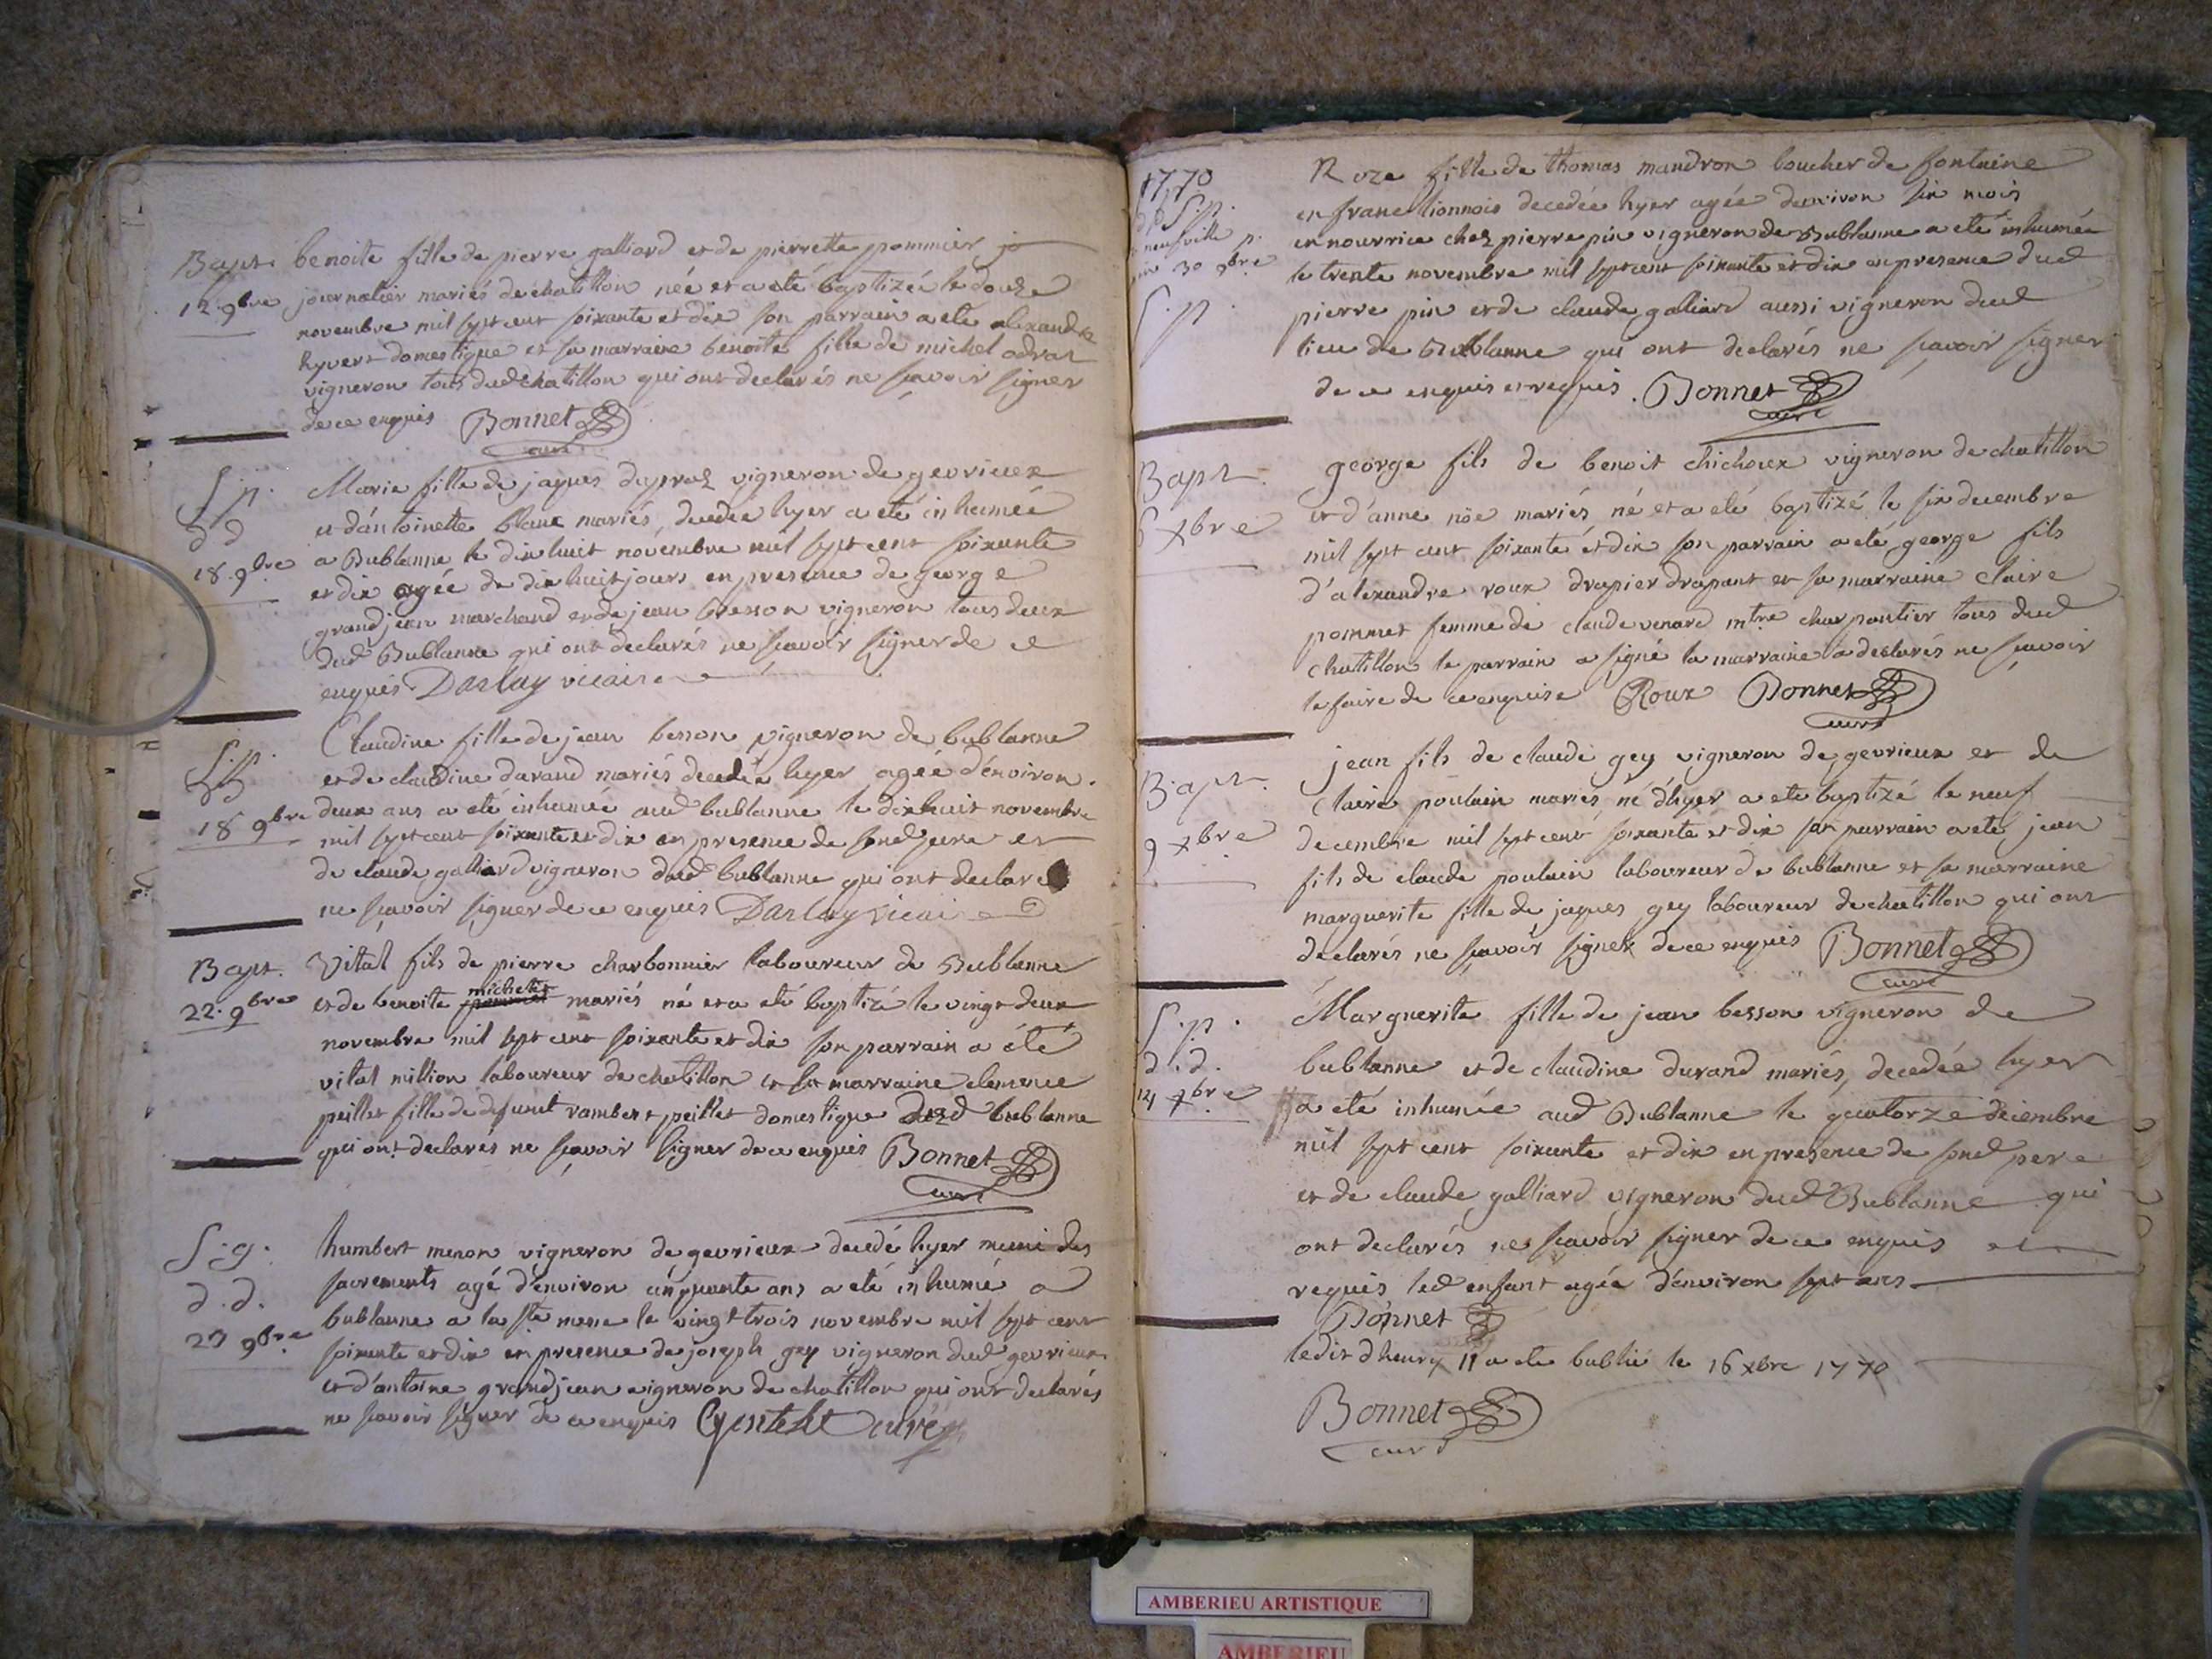 Bapt. benoite fille de pierre galliard et de pierrette pommier jo
12. 9bre journalier mariés de chatillon née et a eté baptizée le douze
novembre mil sept cent soixante et dix son parrain a eté alexandre
hyvert domestique et sa marraine benoite fille de michel odrat
vigneron tous dud chatillon qui ont declarés ne sçavoir signer
de ce enquis Bonnet
curé
S.p. Marie fille de jaques dupraz vigneron de gevrieux
d d et d'antoinette blanc mariés, decedée hyer a eté inhumée
18. 9bre a Bublanne le dix huit novembre mil sept cent soixante
et dix agée de dix huit jours en presence de george
grandjean marchand et de jean besson vigneron tous deux
dud Bublanne qui ont declarés ne sçavoir signer de ce
enquis Darlay vicaire
S.p. Claudine fille de jean besson vigneron de bublanne
dd et de claudine durand mariés decedée hyer agée d'environ
18 9bre deux ans a eté inhumée aud bublanne le dixhuit novembre
mil sept cent soixante et dix en presence de sond pere et
de claude galliard vigneron dud bublanne qui ont declaré
ne sçavoir signer de ce enquis Darlay vicaire
Bapt. Vital fils de pierre charbonnier laboureur de Bublanne
michelet
22. 9bre et de benoite pommet mariés né et a eté baptizé le vingt deux
novembre mil sept cent soixante et dix son parrain a été
vital million laboureur de chatillon et sa marraine clemence
peillet fille de defunct rambert peillet domestique dud bublanne
qui ont declarés ne sçavoir signer de ce enquis Bonnet
curé
S.g. humbert menon vigneron de gevrieux decedé hyer muni des
d.d. sacrements agé d'environ cinquante ans a eté inhumé a
23 9bre bublanne a la ste mesne le vingt trois novembre mil sept cent
soixante et dix en presence de joseph gey vigneron dud gevrieux
et d'antoine grandjean vigneron de chatillon qui ont declarés
ne sçavoir signer de ce enquis curé
1770 Roze fille de thomas mandron boucher de fontaine
S.p. en franc lionnois decedée hyer agée d'environ six mois
neufville p. en nourrice chez pierre pin vigneron de Bublanne a eté inhumée
30 9bre le trente novembre mil sept cent soixante et dix en presence dud
S.p. pierre pin et de claude galliard aussi vigneron dud
lieu de Bublanne qui ont declarés ne sçavoir signer
de ce enquis et requis. Bonnet
curé
Bapt. george fils de benoit chichoux vigneron de chatillon
6 xbre et d'anne nöe mariés né et a eté baptizé le six decembre
mil sept cent soixante et dix son parrain a eté george fils
d'alexandre roux drapier drapant et sa marraine claire
pommet femme de claude venard mtre charpantier tous dud
chatillon le parrain a signé la marraine a declarés ne sçavoir
le faire de ce enquise Roux Bonnet
curé
Bapt. jean fils de claude gey vigneron de gevrieux et de
claire poulain mariés, né d'hyer a eté baptizé le neuf
9 xbre decembre mil sept cent soixante et dix son parrain a eté jean
fils de claude poulain laboureur de bublanne et sa marraine
marguerite fille de jaques gey laboureur de chatillon qui ont
declarés ne sçavoir signer de ce enquis Bonnet
curé
S.p. Marguerite fille de jean besson vigneron de
d.d. bublanne et de claudine durand mariés, decedée hyer
14 xbre a eté inhumée aud Bublanne le quatorze decembre
mil sept cent soixante et dix en presence de sond pere
et de claude galliard vigneron dud Bublanne qui
ont declarés ne sçavoir signer de ce enquis et
requis led enfant agée d'environ sept ans
Bonnet
ledit d'henry II a eté bublié le 16 xbre 1770
Bonnet
curé
AMBERIEU ARTISTIQUE
AMBERIEU